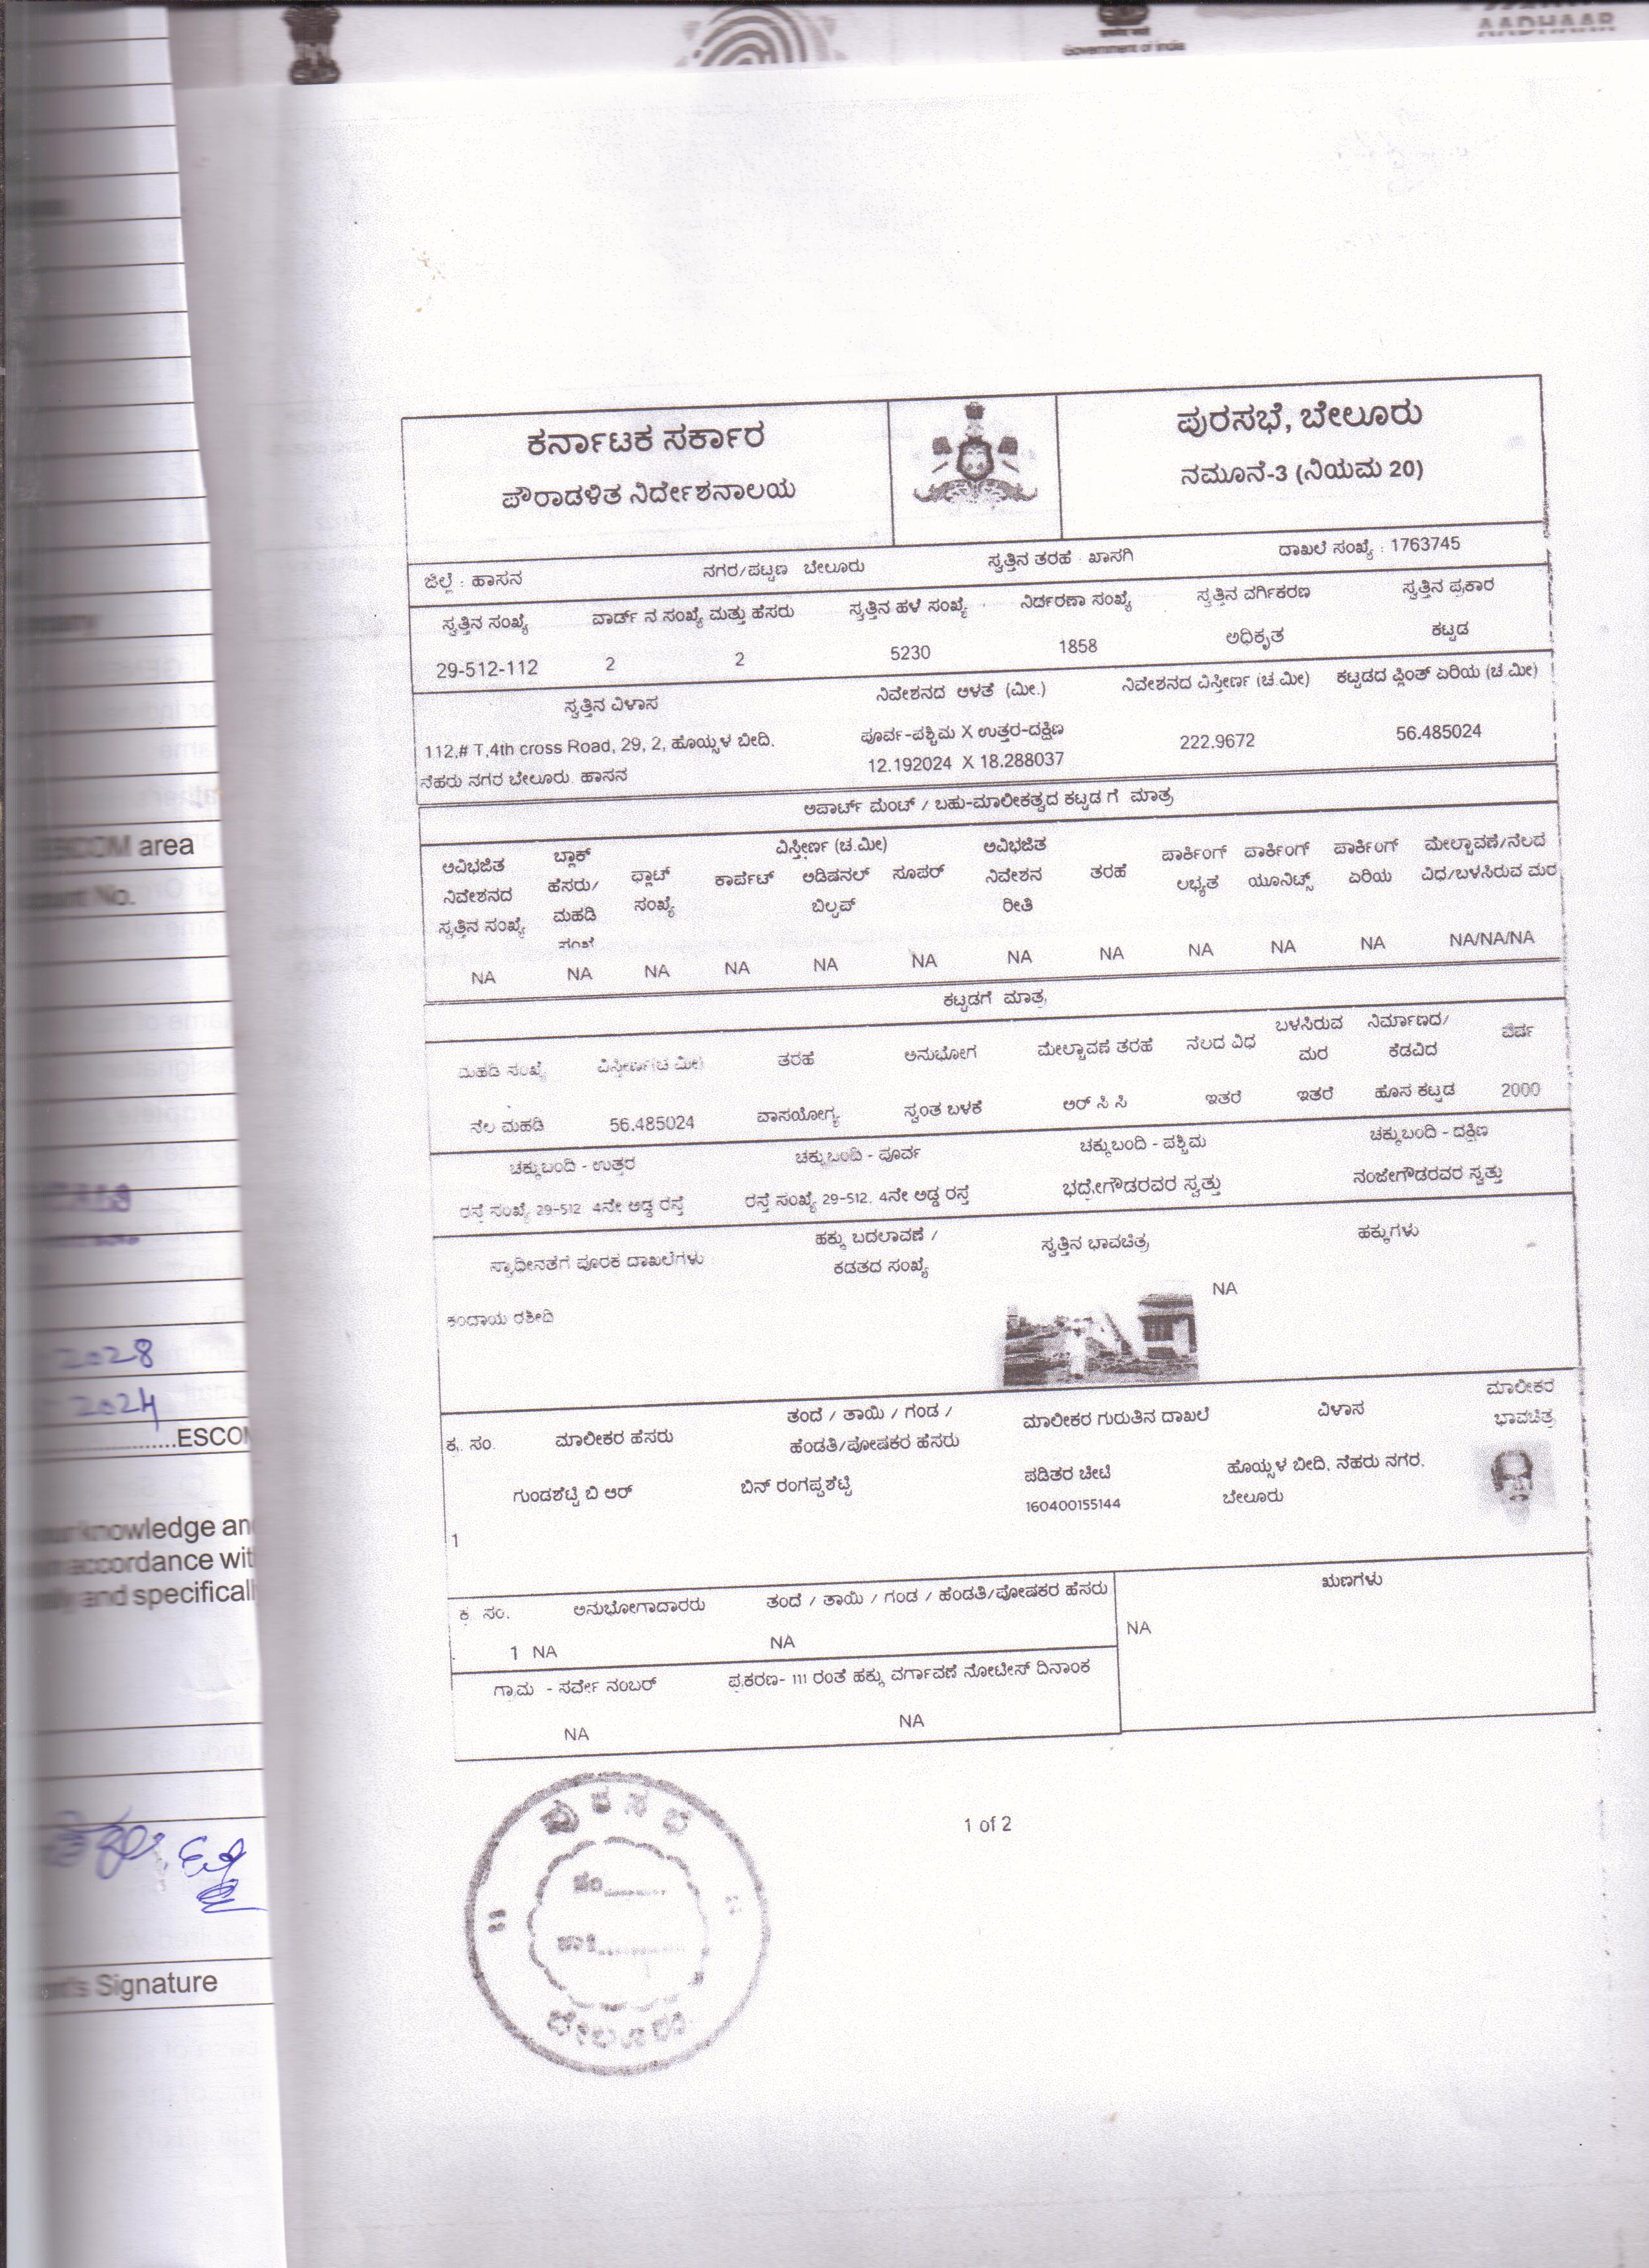 Government of India
AADHAAR
ಕರ್ನಾಟಕ ಸರ್ಕಾರ
ಪೌರಾಡಳಿತ ನಿರ್ದೇಶನಾಲಯ
ಪುರಸಭೆ, ಬೇಲೂರು
ನಮೂನೆ-3 (ನಿಯಮ 20)
ಜಿಲ್ಲೆ : ಹಾಸನ ನಗರ/ಪಟ್ಟಣ ಬೇಲೂರು ಸ್ವತ್ತಿನ ತರಹೆ ಖಾಸಗಿ ದಾಖಲೆ ಸಂಖ್ಯೆ : 1763745
ಸ್ವತ್ತಿನ ಸಂಖ್ಯೆ ವಾರ್ಡ್ ನ ಸಂಖ್ಯೆ ಮತ್ತು ಹೆಸರು ಸ್ವತ್ತಿನ ಹಳೆ ಸಂಖ್ಯೆ ನಿರ್ದರಣಾ ಸಂಖ್ಯೆ ಸ್ವತ್ತಿನ ವರ್ಗಿಕರಣ ಸ್ವತ್ತಿನ ಪ್ರಕಾರ
29-512-112 2 2 5230 1858 ಅಧಿಕೃತ ಕಟ್ಟಡ
ಸ್ವತ್ತಿನ ವಿಳಾಸ ನಿವೇಶನದ ಅಳತೆ (ಮೀ.) ನಿವೇಶನದ ವಿಸ್ತೀರ್ಣ (ಚ.ಮೀ) ಕಟ್ಟಡದ ಪ್ಲಿಂತ್ ಏರಿಯ (ಚ.ಮೀ)
112,# T,4th cross Road, 29, 2, ಹೊಯ್ಸಳ ಬೀದಿ, ಪೂರ್ವ-ಪಶ್ಚಿಮ X ಉತ್ತರ-ದಕ್ಷಿಣ 222.9672 56.485024
ನೆಹರು ನಗರ ಬೇಲೂರು ಹಾಸನ 12.192024 X 18.288037
ಅಪಾರ್ಟ್ ಮೆಂಟ್ / ಬಹು-ಮಾಲೀಕತ್ವದ ಕಟ್ಟಡ ಗೆ ಮಾತ್ರ
ವಿಸ್ತೀರ್ಣ (ಚ.ಮೀ)
ಅವಿಭಜಿತ ಬ್ಲಾಕ್ ಅವಿಭಜಿತ ಪಾರ್ಕಿಂಗ್ ಪಾರ್ಕಿಂಗ್ ಪಾರ್ಕಿಂಗ್ ಮೇಲ್ಚಾವಣೆ/ನೆಲದ
ನಿವೇಶನದ ಹೆಸರು/ ಫ್ಲಾಟ್ ಕಾರ್ಪೆಟ್ ಅಡಿಷನಲ್ ಸೂಪರ್ ನಿವೇಶನ ತರಹೆ ಲಭ್ಯತೆ ಯೂನಿಟ್ಸ್ ಏರಿಯ ವಿಧ/ಬಳಸಿರುವ ಮರ
ಸ್ವತ್ತಿನ ಸಂಖ್ಯೆ ಮಹಡಿ ಸಂಖ್ಯೆ ಬಿಲ್ಟಪ್ ರೀತಿ
NA NA NA NA NA NA NA NA NA NA NA NA/NA/NA
ಕಟ್ಟಡಗೆ ಮಾತ್ರ
ಮಹಡಿ ಸಂಖ್ಯೆ ವಿಸ್ತೀರ್ಣ(ಚ ಮೀ) ತರಹೆ ಅನುಭೋಗ ಮೇಲ್ಚಾವಣೆ ತರಹೆ ನೆಲದ ವಿಧ ಬಳಸಿರುವ ನಿರ್ಮಾಣದ/ ವರ್ಷ
ಮರ ಕೆಡವಿದ
ನೆಲ ಮಹಡಿ 56.485024 ವಾಸಯೋಗ್ಯ ಸ್ವಂತ ಬಳಕೆ ಆರ್ ಸಿ ಸಿ ಇತರೆ ಇತರೆ ಹೊಸ ಕಟ್ಟಡ 2000
ಚಕ್ಕುಬಂದಿ - ಉತ್ತರ ಚಕ್ಕುಬಂದಿ - ಪೂರ್ವ ಚಕ್ಕುಬಂದಿ - ಪಶ್ಚಿಮ ಚಕ್ಕುಬಂದಿ - ದಕ್ಷಿಣ
ರಸ್ತೆ ಸಂಖ್ಯೆ 29-512 4ನೇ ಅಡ್ಡ ರಸ್ತೆ ರಸ್ತೆ ಸಂಖ್ಯೆ 29-512, 4ನೇ ಅಡ್ಡ ರಸ್ತೆ ಭದ್ರೇಗೌಡರವರ ಸ್ವತ್ತು ನಂಜೇಗೌಡರವರ ಸ್ವತ್ತು
ಸ್ವಾಧೀನತೆಗೆ ಪೂರಕ ದಾಖಲೆಗಳು ಹಕ್ಕು ಬದಲಾವಣೆ / ಸ್ವತ್ತಿನ ಭಾವಚಿತ್ರ ಹಕ್ಕುಗಳು
ಕಡತದ ಸಂಖ್ಯೆ
ಕಂದಾಯ ರಶೀದಿ NA
ಕ್ರ. ಸಂ. ಮಾಲೀಕರ ಹೆಸರು ತಂದೆ / ತಾಯಿ / ಗಂಡ / ಮಾಲೀಕರ ಗುರುತಿನ ದಾಖಲೆ ವಿಳಾಸ ಮಾಲೀಕರ
ಹೆಂಡತಿ/ಪೋಷಕರ ಹೆಸರು ಭಾವಚಿತ್ರ
ಗುಂಡಶೆಟ್ಟಿ ಬಿ ಆರ್ ಬಿನ್ ರಂಗಪ್ಪಶೆಟ್ಟಿ ಪಡಿತರ ಚೀಟಿ ಹೊಯ್ಸಳ ಬೀದಿ, ನೆಹರು ನಗರ,
160400155144 ಬೇಲೂರು
1
ಕ್ರ. ಸಂ. ಅನುಭೋಗದಾರರು ತಂದೆ / ತಾಯಿ / ಗಂಡ / ಹೆಂಡತಿ/ಪೋಷಕರ ಹೆಸರು ಋಣಗಳು
1 NA NA NA
ಗ್ರಾಮ - ಸರ್ವೇ ನಂಬರ್ ಪ್ರಕರಣ- 111 ರಂತೆ ಹಕ್ಕು ವರ್ಗಾವಣೆ ನೋಟೀಸ್ ದಿನಾಂಕ
NA NA
1 of 2
ಪುರಸಭೆ
ಬೇಲೂರು
ESCOM area
No.
2028
2024
ESCOM
knowledge and
accordance with
and specifically
Signature